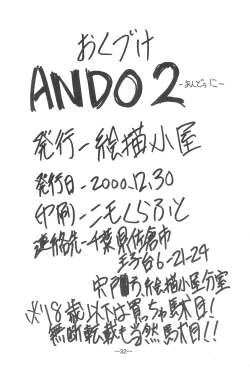 おくづけ
ANDO 2 -あんどぅ に-
発行-絵描小屋
発行日-2000.12.30
印刷-ニモくらふと
連絡先-千葉県佐倉市
王子台6-21-24
方絵描小屋分室
※18歳以下は買っちゃ駄目!
無断転載も当然駄目!!
-32-